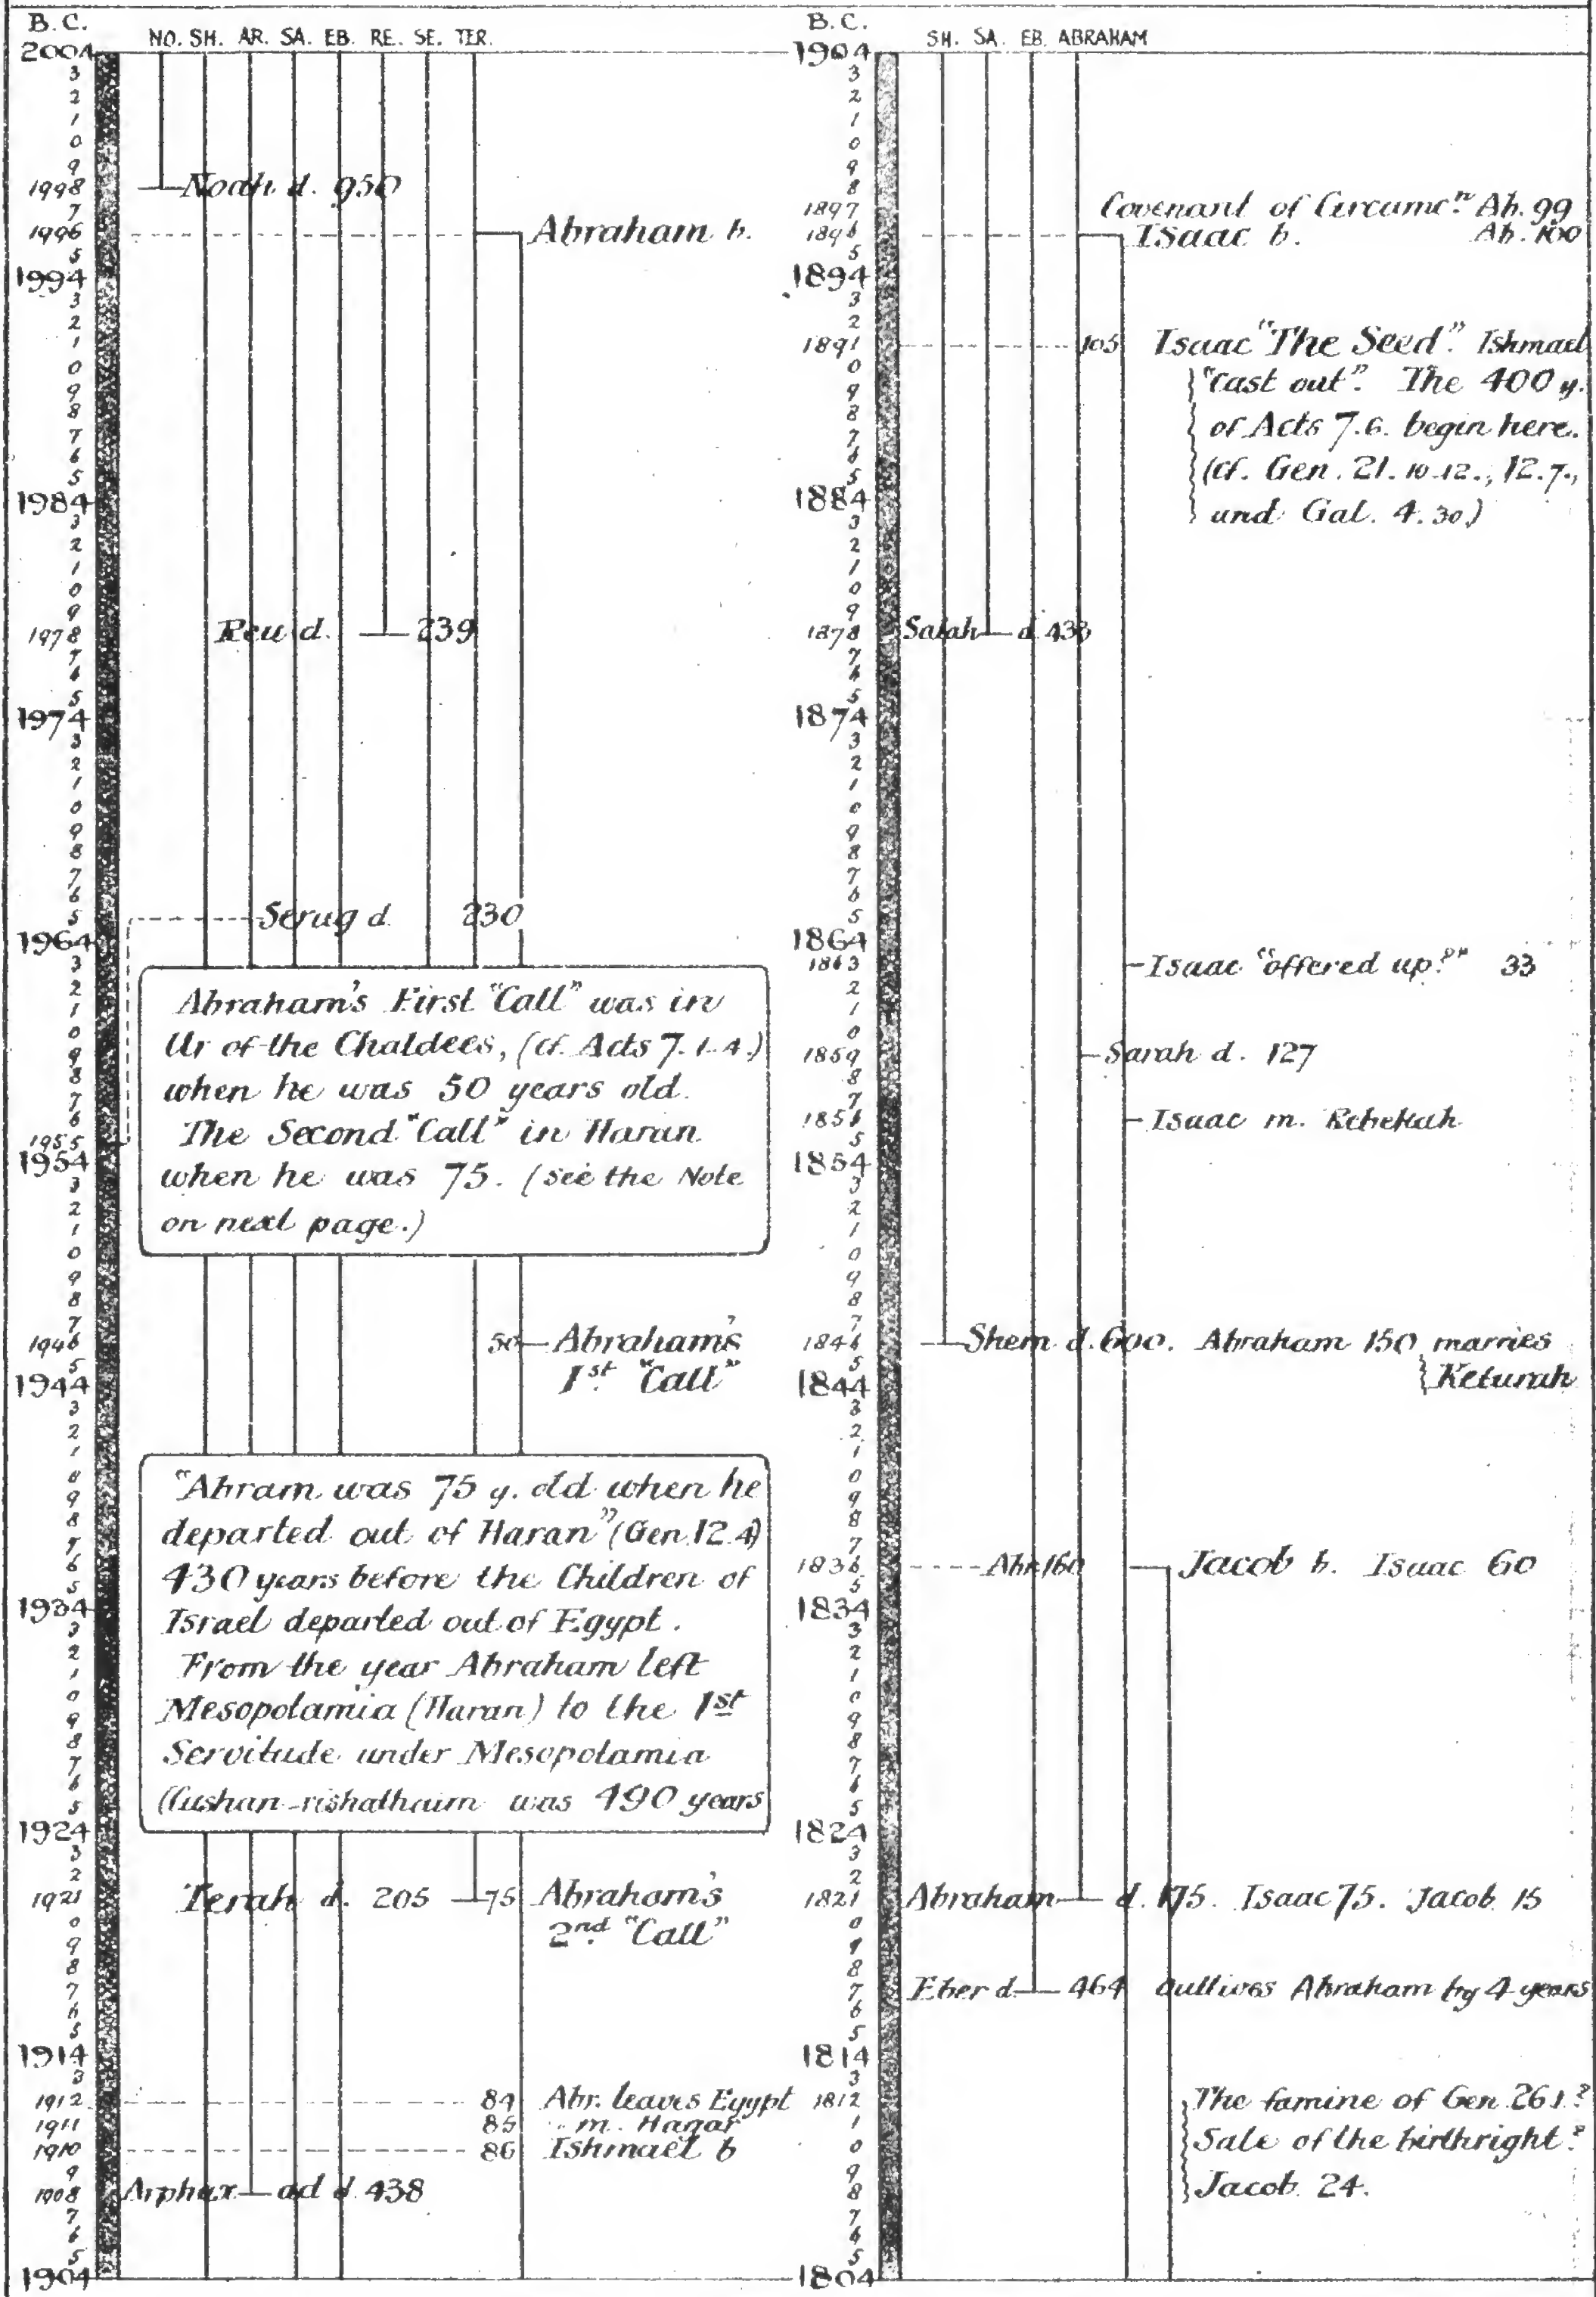 B.C.
NO. SH. AR. SA. EB. RE. SE. TER.
2004
3
2
1
0
9
1998 Noah d. 950
7
1996 Abraham b.
5
1994
3
2
1
0
9
8
7
6
5
1984
3
2
1
0
9
1978 Reu d. 239
7
6
5
1974
3
2
1
0
9
8
7
6
5 Serug d. 230
1964
3
2
1
0
9
8
7
6
1955
1954
3
2
1
0
9
8
7
Abraham's First "Call" was in
Ur of the Chaldees, (cf. Acts 7. 1-4.)
when he was 50 years old.
The Second "Call" in Haran
when he was 75. (see the Note
on next page.)
1946 50 Abraham's
1st "Call"
5
1944
3
2
1
0
9
8
7
6
5
1934
3
2
1
0
9
8
7
6
5
1924
"Abram was 75 y. old when he
departed out of Haran" (Gen. 12. 4)
430 years before the Children of
Israel departed out of Egypt.
From the year Abraham left
Mesopotamia (Haran) to the 1st
Servitude under Mesopotamia
(Cushan-rishathaim was 490 years
3
2
1921 Terah d. 205 75 Abraham's
2nd "Call"
0
9
8
7
6
5
1914
3
1912 84 Abr. leaves Egypt
1911 85 " m. Hagar
1910 86 Ishmael b
9
1908 Arphax ad d. 438
7
6
5
1904
B.C.
SH. SA. EB. ABRAHAM
1904
3
2
1
0
9
8
1897 Covenant of Circumcn. Ab. 99
1896 Isaac b. Ab. 100
5
1894
3
2
1891 105 Isaac "The Seed". Ishmael
"Cast out". The 400 y.
of Acts 7.6. begin here.
(cf. Gen. 21. 10-12., 12.7.,
and Gal. 4. 30)
0
9
8
7
6
5
1884
3
2
1
0
9
1878 Salah d. 433
7
6
5
1874
3
2
1
0
9
8
7
6
5
1864
1863 Isaac "offered up?" 33
2
1
0
1859 Sarah d. 127
8
7
1856 Isaac m. Rebekah
5
1854
3
2
1
0
9
8
7
1846 Shem d. 600. Abraham 150 marries
Keturah
5
1844
3
2
1
0
9
8
7
1836 Abr. 160 Jacob b. Isaac 60
5
1834
3
2
1
0
9
8
7
6
5
1824
3
2
1821 Abraham d. 175. Isaac 75. Jacob 15
0
9
8
7 Eber d. 464 outlives Abraham by 4 years
6
5
1814
3
1812 The famine of Gen. 26.1?
1 Sale of the birthright?
0 Jacob 24.
9
8
7
6
5
1804